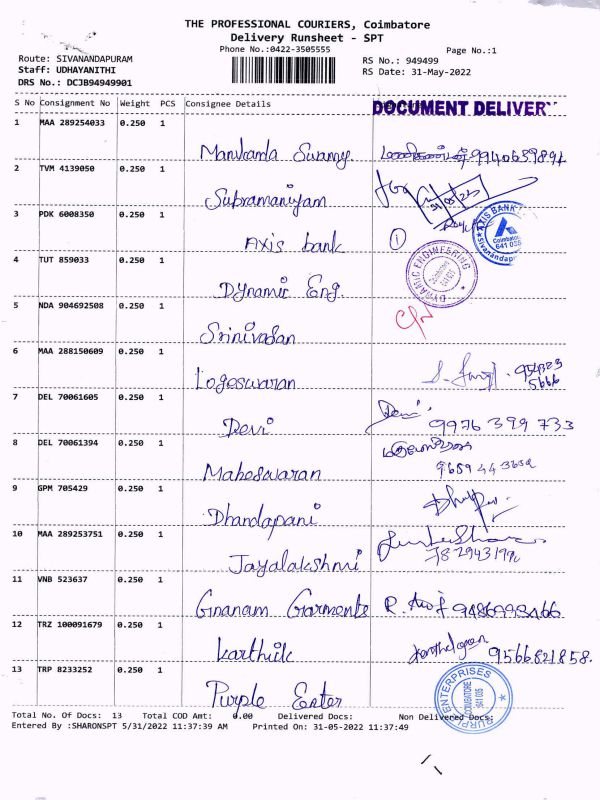 THE PROFESSIONAL COURIERS, Coimbatore
Delivery Runsheet - SPT
Phone No.:0422-3505555
Page No.:1
Route: SIVANANDAPURAM
RS No.: 949499
Staff: UDHAYANITHI
RS Date: 31-May-2022
DRS No.: DCJB94949901
S No Consignment No Weight PCS Consignee Details
DOCUMENT DELIVER
1 MAA 289254033 0.250 1
Manikanda Swamy. 9940659891
2 TVM 4139050 0.250 1
Subramaniyam
3 PDK 6008350 0.250 1
Axis bank 1
AXIS BANK
Coimbatore
641 035
Sivanandapur
4 TUT 859033 0.250 1
Dynamic Eng.
DYNAMIC ENGINEERING
Coimbatore
641 035
5 NDA 904692508 0.250 1
Srinivasan
6 MAA 288150609 0.250 1
Logeswaran
7 DEL 70061605 0.250 1
Devi Devi 9976 399 733
8 DEL 70061394 0.250 1
Maheswaran 9659 44 3652
9 GPM 705429 0.250 1
Dhandapani
10 MAA 289253751 0.250 1
Jayalakshmi
11 VNB 523637 0.250 1
Gnanam Garments
12 TRZ 100091679 0.250 1
Karthick 9566821858.
13 TRP 8233252 0.250 1
Purple Enter
PURPLE ENTERPRISES
COIMBATORE
641 035
Total No. Of Docs: 13 Total COD Amt: 0.00 Delivered Docs: Non Delivered Docs:
Entered By :SHARONSPT 5/31/2022 11:37:39 AM Printed On: 31-05-2022 11:37:49